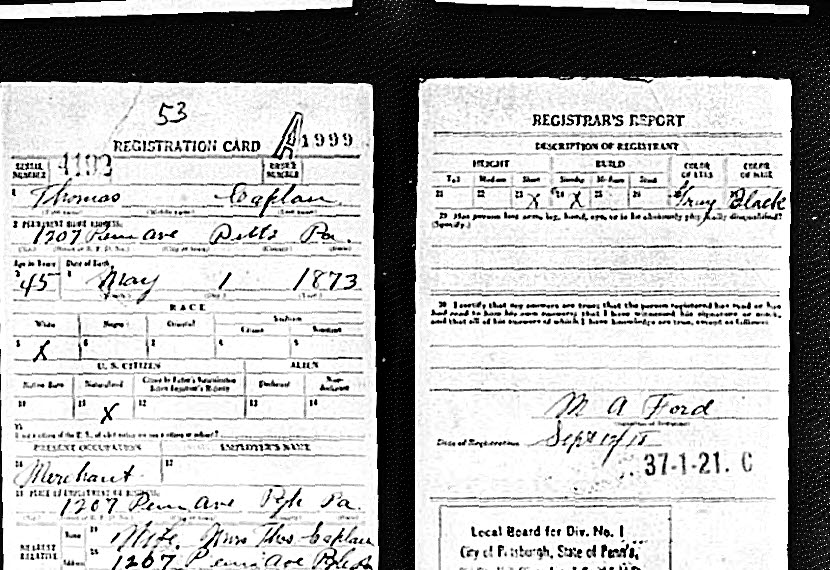 53
REGISTRATION CARD A1999
SERIAL NUMBER 4193 ORDER NUMBER
1 Thomas Caplan
2 PERMANENT HOME ADDRESS:
1207 Penn ave Pitts Pa.
Age in Years Date of Birth
3 45 4 May 1 1873
RACE
White Negro Oriental Indian
Citizen Noncitizen
5 X 6 7 8 9
U. S. CITIZEN ALIEN
Native Born Naturalized Citizen by Father's Naturalization Before Registrant's Majority Declarant Non-declarant
10 11 X 12 13 14
15
PRESENT OCCUPATION EMPLOYER'S NAME
16 Merchant 17
18 PLACE OF EMPLOYMENT OR BUSINESS:
1207 Penn ave Pgh Pa.
NEAREST RELATIVE Name 19 Wife, Mrs Thos Caplan
Address 20 1207 Penn ave
REGISTRAR'S REPORT
DESCRIPTION OF REGISTRANT
HEIGHT BUILD COLOR OF EYES COLOR OF HAIR
Tall Medium Short Slender Medium Stout
21 22 23 X 24 X 25 26 Gray Black
29 Has person lost arm, leg, hand, eye, or is he obviously physically disqualified?
(Specify.)
30 I certify that my answers are true; that the person registered has read or has
had read to him his own answers; that I have witnessed his signature or mark,
and that all of his answers of which I have knowledge are true, except as follows:
M A Ford
Date of Registration Sept
37-1-21. C
Local Board for Div. No. 1
City of Pittsburgh, State of Penn'a,